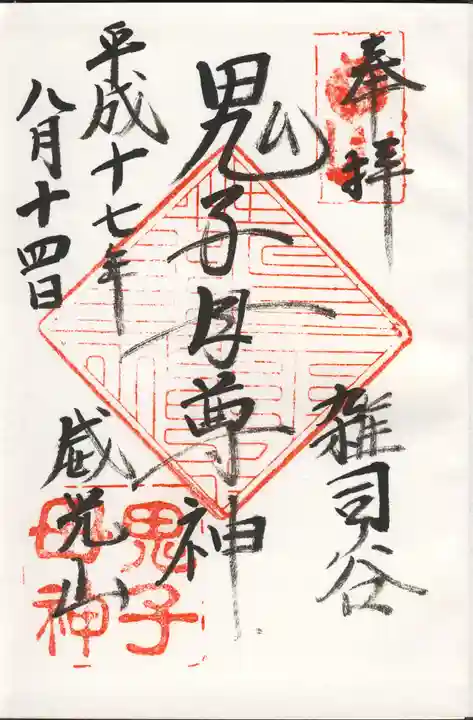 奉拝
雑司谷
鬼子母尊神
平成十七年
八月十四日
威光山
鬼子
母神